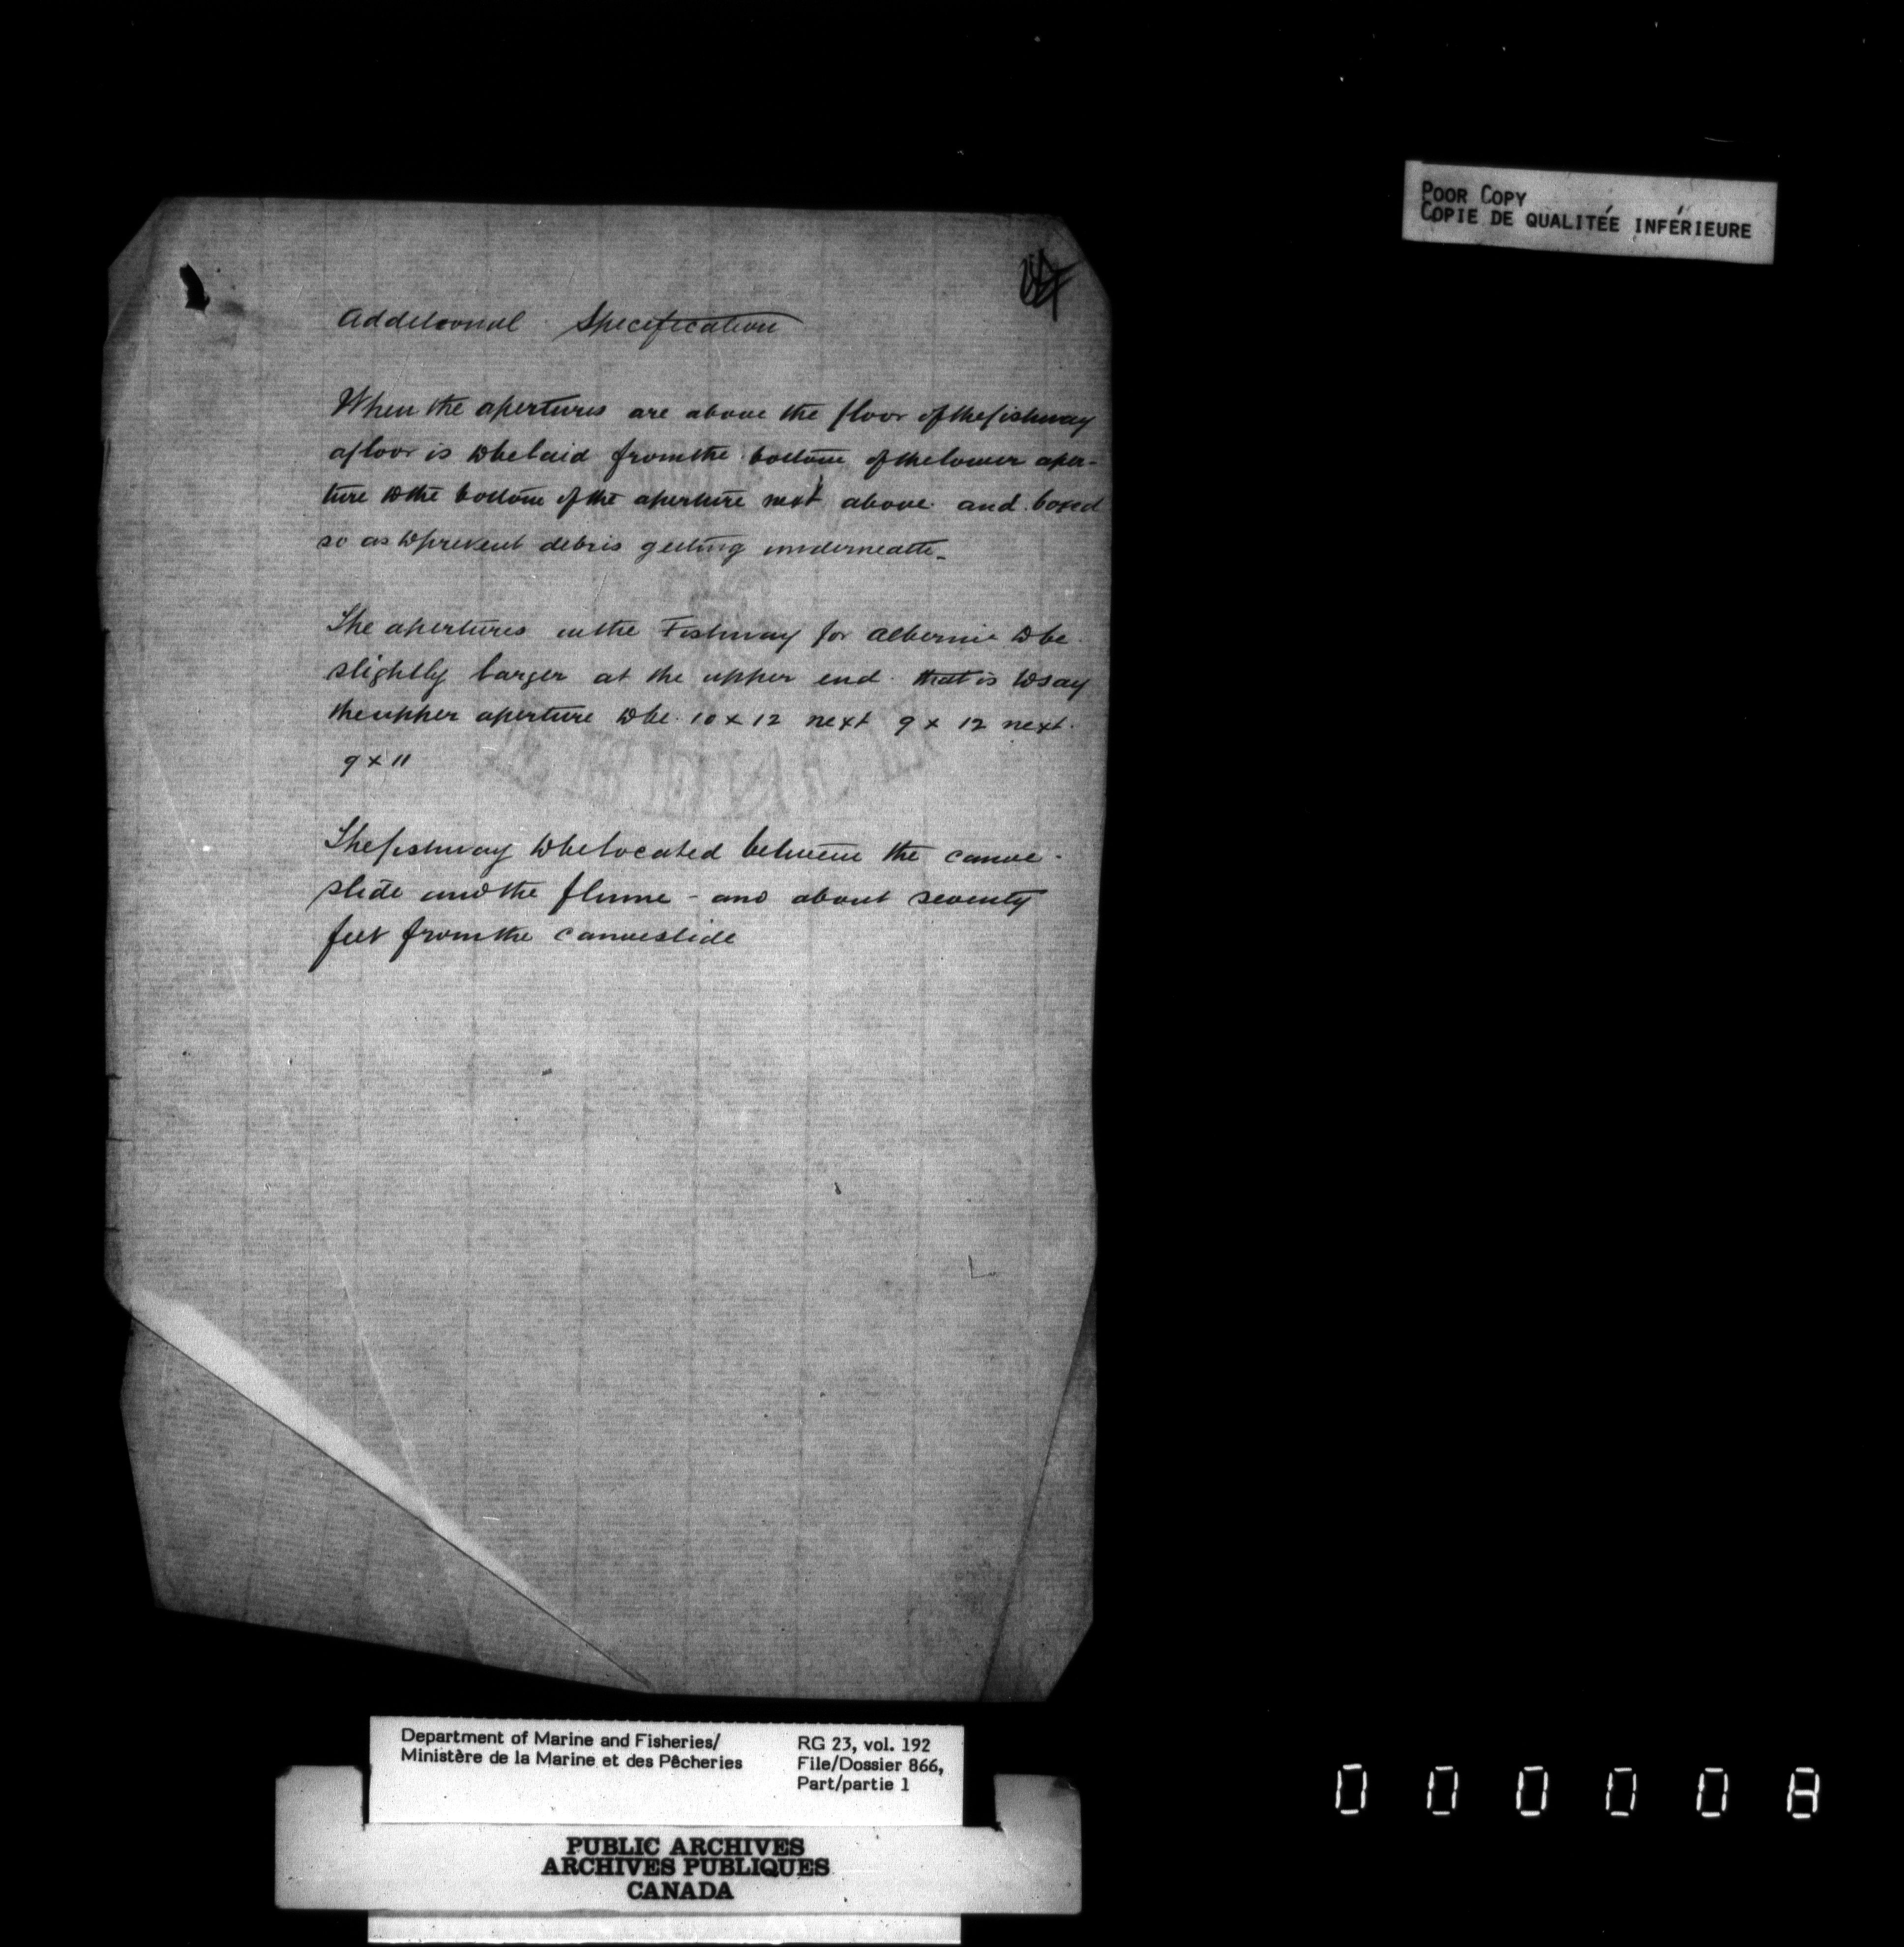 POOR COPY
COPIE DE QUALITÉE INFÉRIEURE
Additional Specification
When the apertures are above the floor of the fishway
a floor is to be laid from the bottom of the lower aper-
ture to the bottom of the aperture next above and boxed
so as to prevent debris getting underneath.
The apertures in the Fishway for Alberni to be
slightly larger at the upper end that is to say
the upper aperture to be 10 x 12 next 9 x 12 next
9 x 11
The fishway to be located between the canoe
slide and the flume - and about seventy
feet from the canoe slide
Department of Marine and Fisheries/
Ministère de la Marine et des Pêcheries
RG 23, vol. 192
File/Dossier 866,
Part/partie 1
PUBLIC ARCHIVES
ARCHIVES PUBLIQUES
CANADA
000008